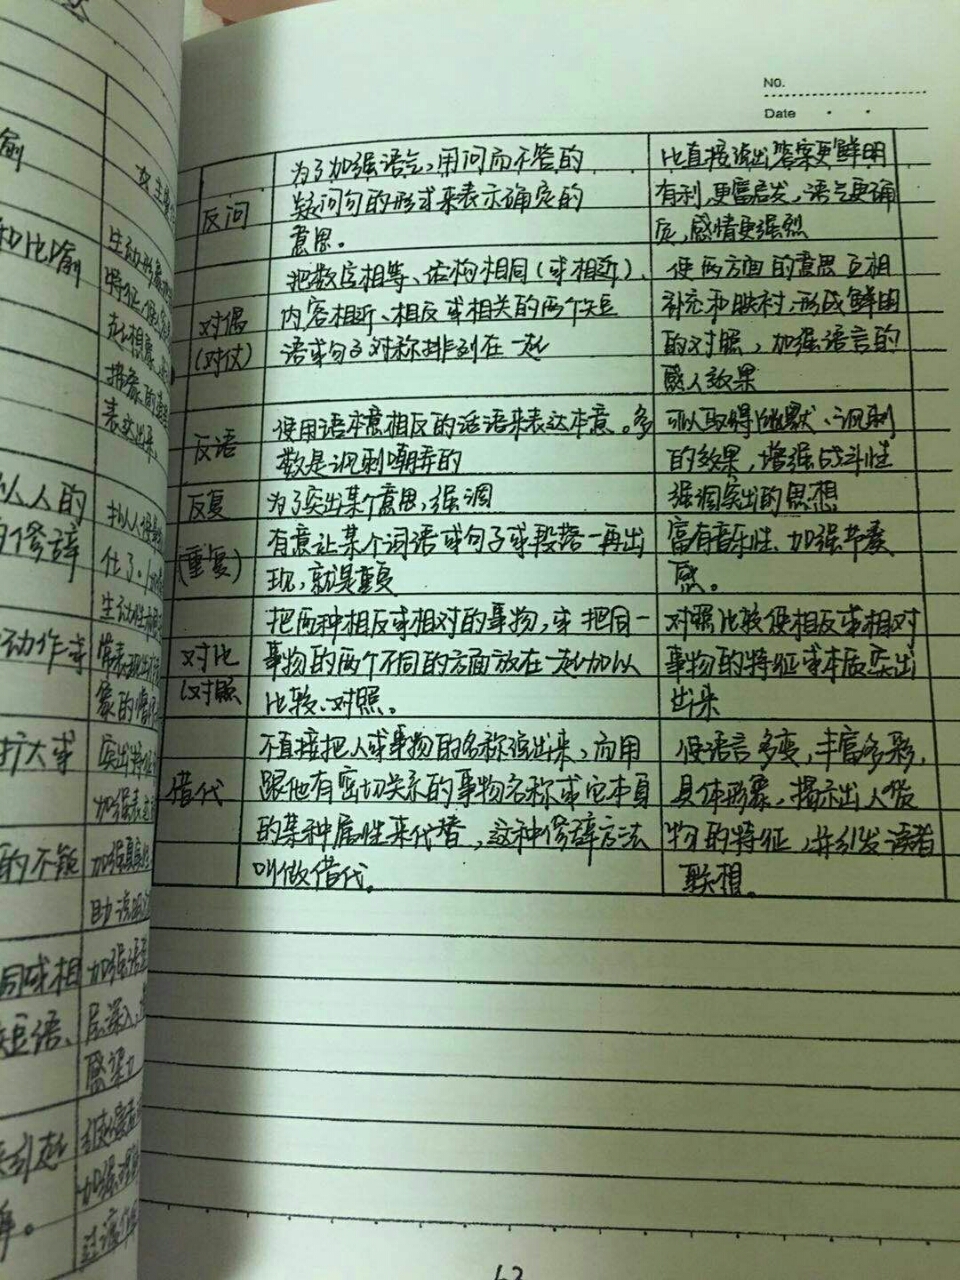 NO.
Date
反问
为了加强语气，用问而不答的
疑问句的形式来表示确定的
意思。
比直接说出答案更鲜明
有利，更富启发，语气更确
定，感情更强烈
对偶
(对仗)
把数字相等、结构相同(或相近)、
内容相近、相反或相关的两个短
语或句子对称排列在一起
使两方面的意思互相
补充和映衬，形成鲜明
的对照，加强语言的
感人效果
反语
使用语本意相反的话语来表达本意。多
数是讽刺嘲弄的
可以取得幽默、讽刺
的效果，增强战斗性
反复
(重复)
为了突出某个意思，强调
有意让某个词语或句子或段落一再出
现，就是重复
强调突出的思想
富有音乐性、加强节奏
感。
对比
(对照
把两种相反或相对的事物，或把同一
事物的两个不同的方面放在一起加以
比较、对照。
对照比较使相反或相对
事物的特征或本质突出
出来
借代
不直接把人或事物的名称说出来，而用
跟他有密切关系的事物名称或它本身
的某种属性来代替，这种修辞方法
叫做借代。
使语言多变，丰富多彩，
具体形象，揭示出人
物的特征，并引发读者
联想。
和比喻
生动形象
特征
表达出来。
以人的
修辞
生动性
动作
扩大或
突出特征
加强表达
的不疑
同或相
短语、
加强语
层深入
感染力
63